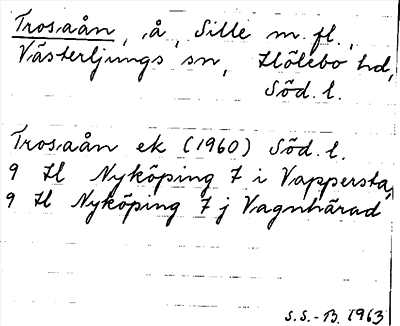 Trosaån, å, Sille m. fl.,
Västerljungs sn, Hölebo hd,
Söd. l.
Trosaån ek (1960) Söd. l.
9 H Nyköping 7 i Vappersta,
9 H Nyköping 7 j Vagnhärad
S.S.-B. 1963